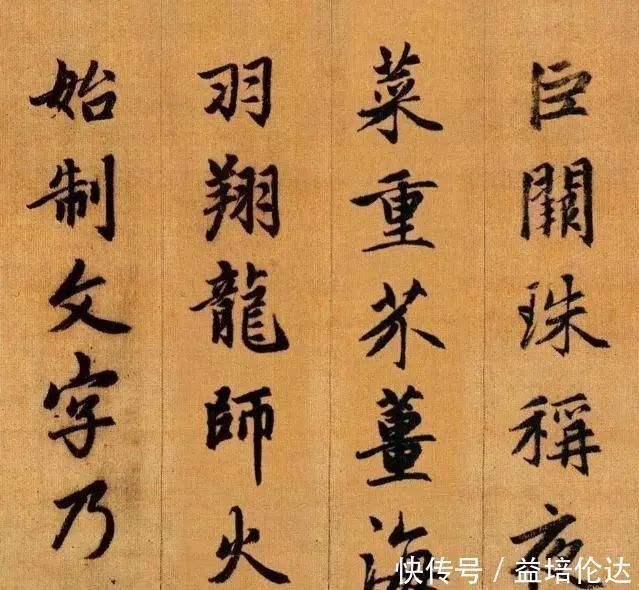 巨闕珠稱夜
菜重芥薑海
羽翔龍師火
始制文字乃
快传号/益培伦达